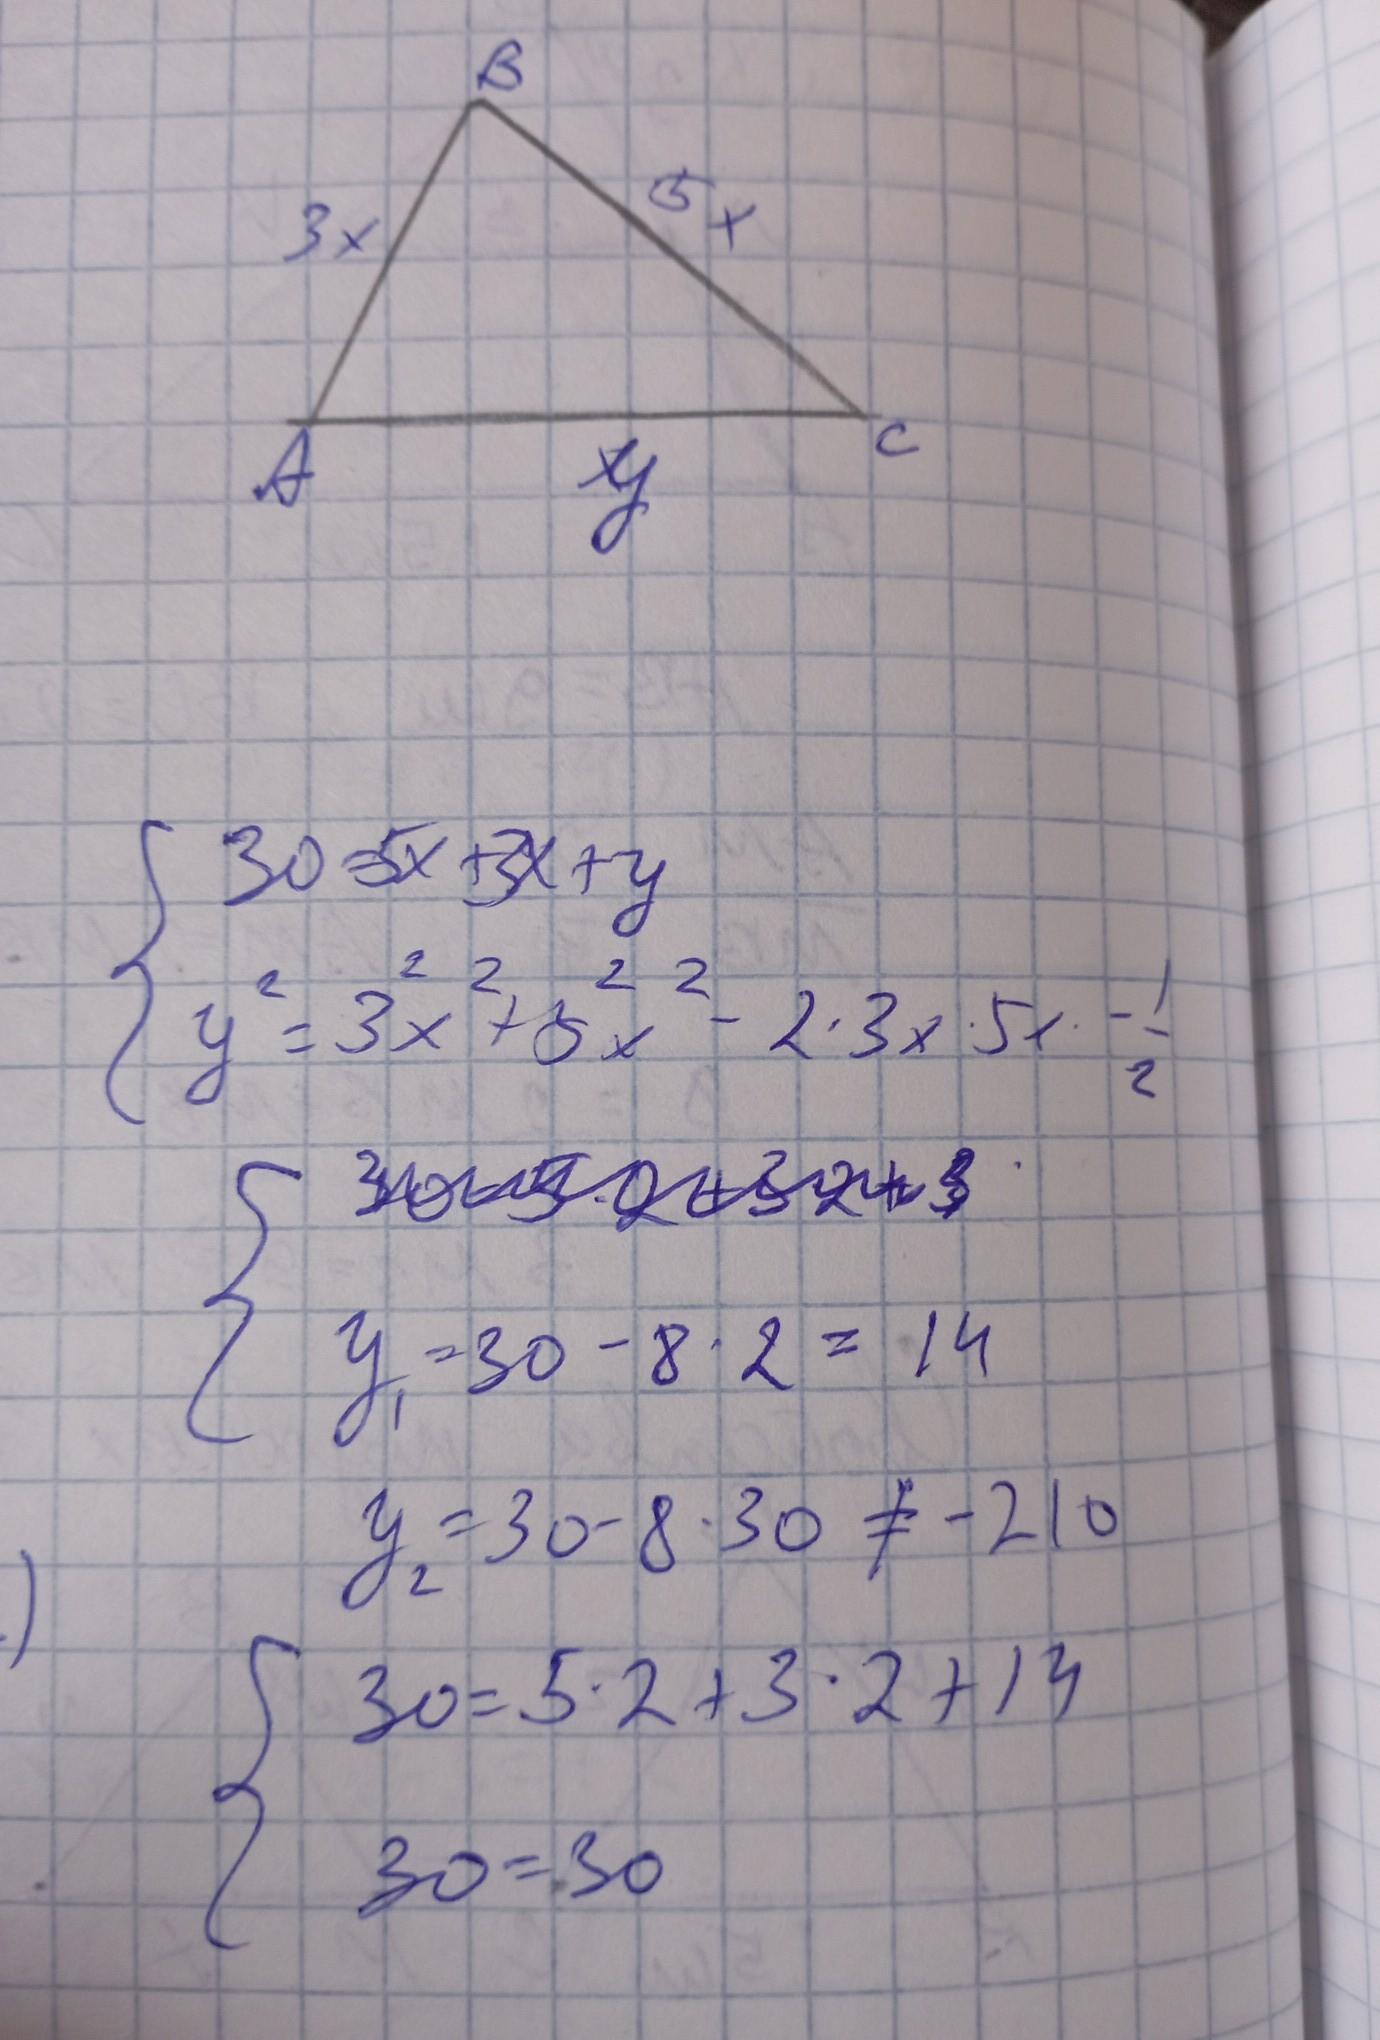 B
3x
5x
A
y
C
30=5x+3x+y
y²=3²x²+5²x²-2·3x·5x·-1/2
y₁=30-8·2=14
y₂=30-8·30≠-210
30=5·2+3·2+14
30=30